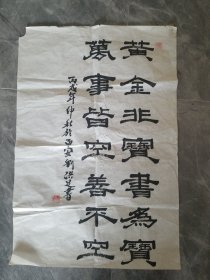 黄金非寶書為寶
萬事皆空善不空
丙戌年仲秋於西安劉洪